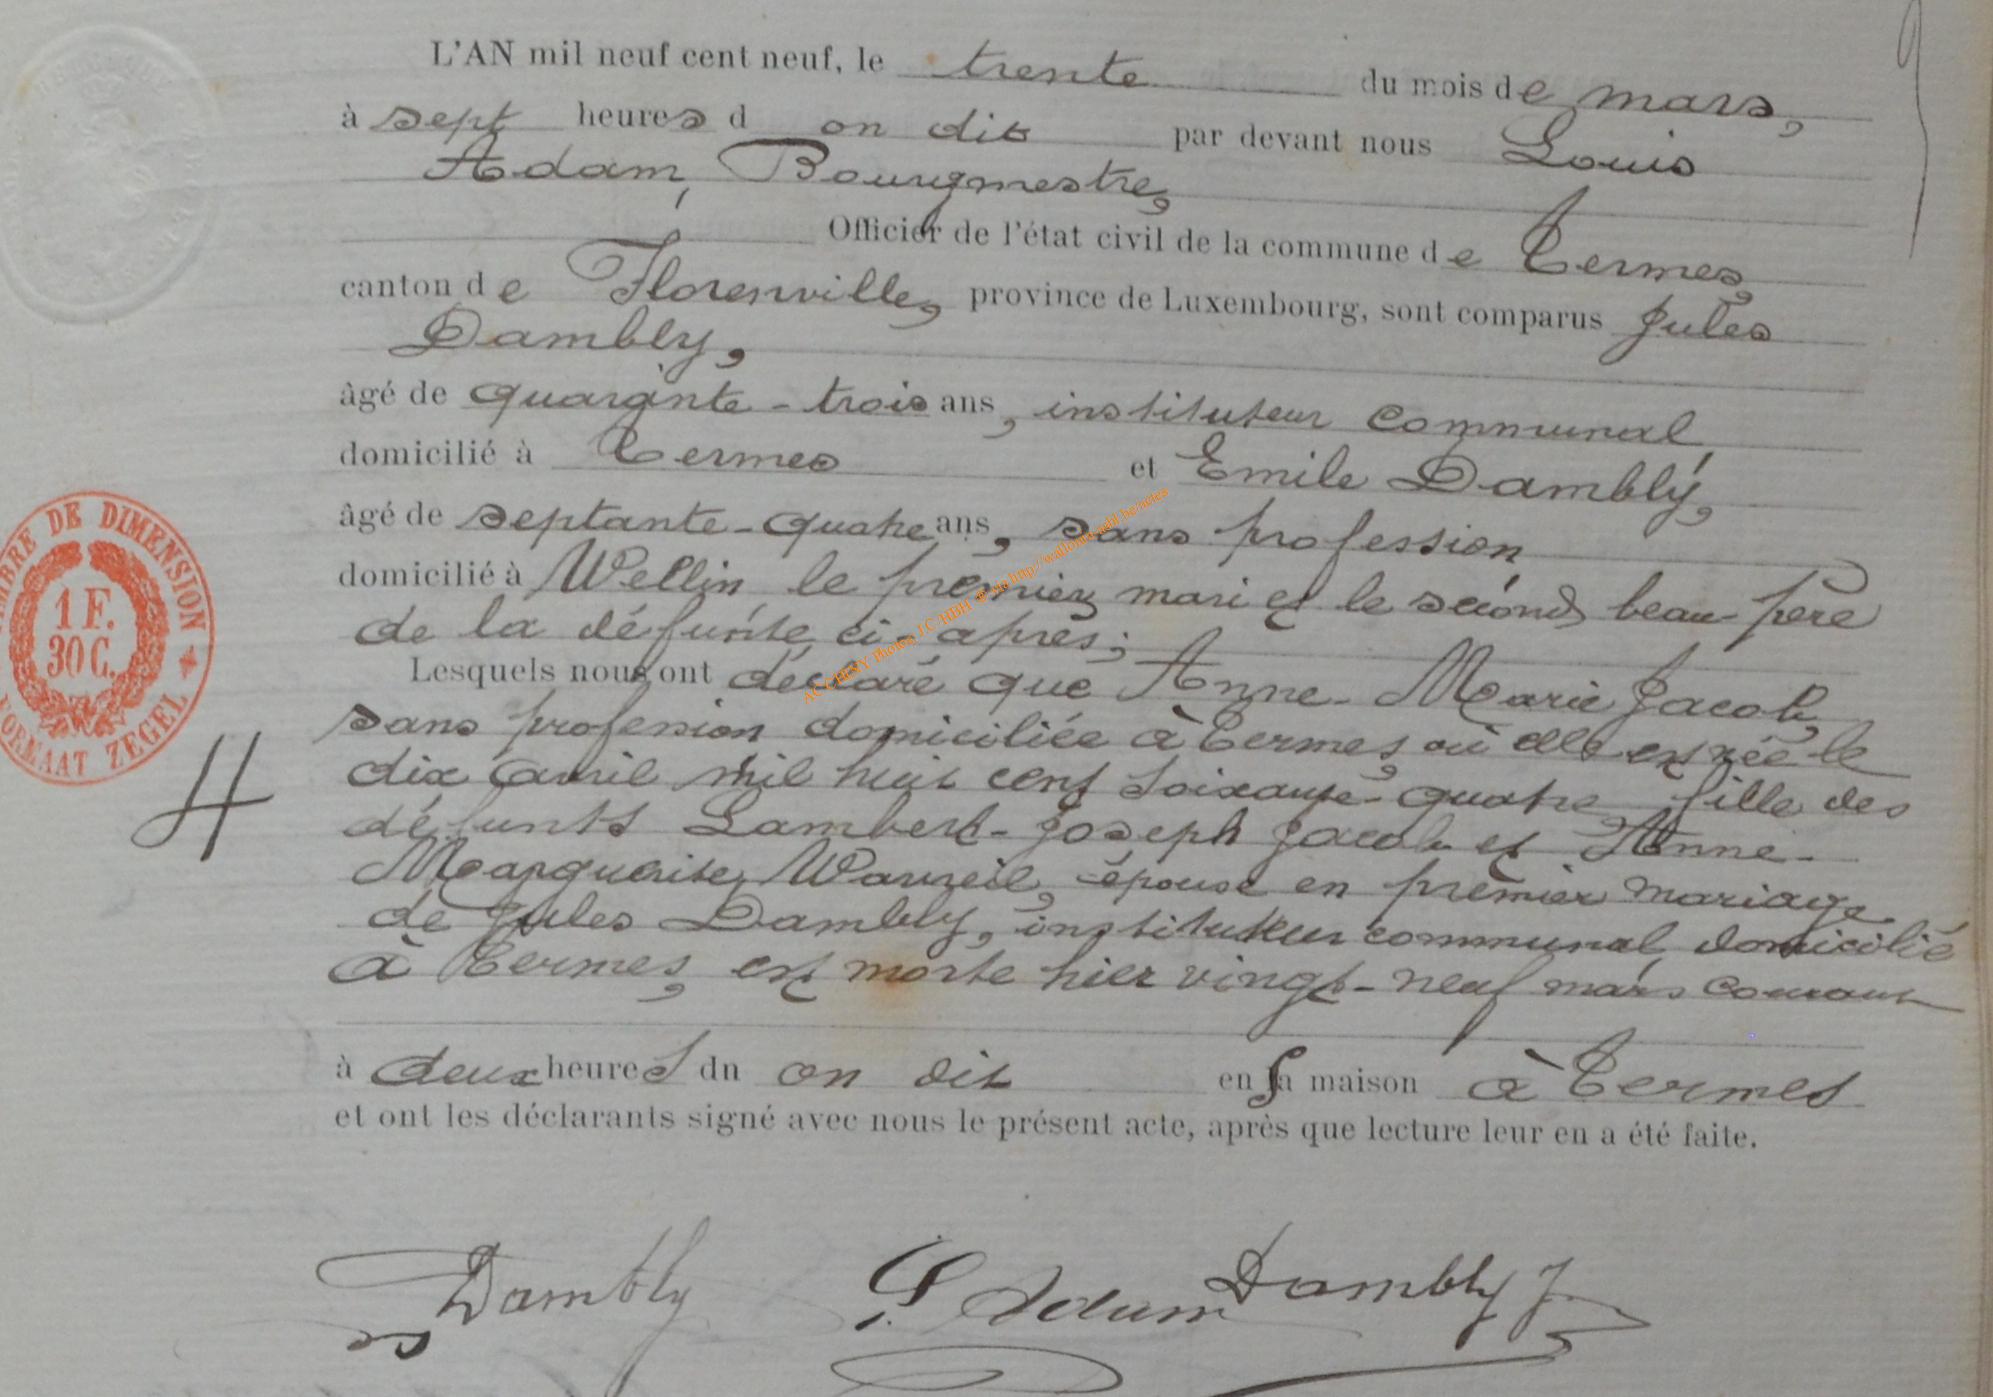 L'AN mil neuf cent neuf, le trente du mois de mars,
à sept heures d on dit par devant nous Louis
Adam, Bourgmestre,
Officier de l'état civil de la commune de Termes,
canton de Florenville, province de Luxembourg, sont comparus Jules
Dambly,
âgé de quarante-trois ans, instituteur communal,
domicilié à Termes et Emile Dambly,
âgé de septante-quatre ans, sans profession
domicilié à Wellin le premier mari et le second beau-père
de la défunte ci-après;
Lesquels nous ont déclaré que Anne-Marie Jacob,
sans profession domiciliée à Termes, où elle est née le
dix avril mil huit cent soixante-quatre fille des
défunts Lambert-Joseph Jacob et Anne-
Marguerite, épouse en premier mariage
de Jules Dambly, instituteur communal, domicilié
à Termes, est morte hier vingt-neuf mars courant
à deux heures du on dit en sa maison à Termes
et ont les déclarants signé avec nous le présent acte, après que lecture leur en a été faite.
Dambly L Adam Dambly J
TIMBRE DE DIMENSION
1 F.
30 C.
FORMAAT ZEGEL
H
9
ACCHESY Photos J.C HBH @ via http://wallonia-asbl.be/actes